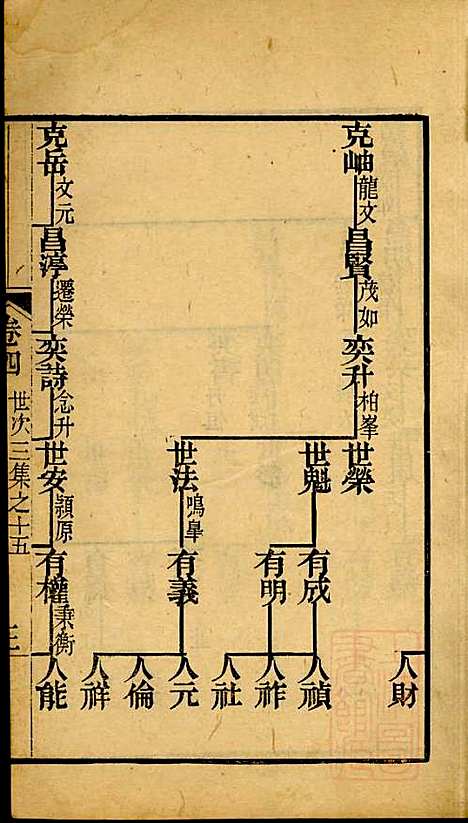 人財
克岫 龍文
昌賢 茂如
奕升 柏峯
世榮
世魁
有成
人禎
人祚
有明
人社
世法 鳴臯
有義
人元
人倫
人祥
克岳 文元
昌渟 遷榮
奕詩 念升
世安 潁原
有權 秉衡
人能
卷四 世次三集之十五 三